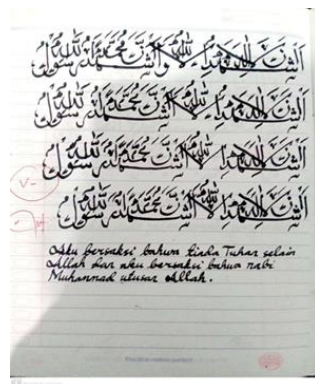 أشهد أن لا إله إلا الله وأشهد أن محمدا رسول الله
أشهد أن لا إله إلا الله وأشهد أن محمدا رسول الله
أشهد أن لا إله إلا الله وأشهد أن محمدا رسول الله
أشهد أن لا إله إلا الله وأشهد أن محمدا رسول الله
Aku bersaksi bahwa tiada Tuhan selain
Allah dan aku bersaksi bahwa nabi
Muhammad utusan Allah.